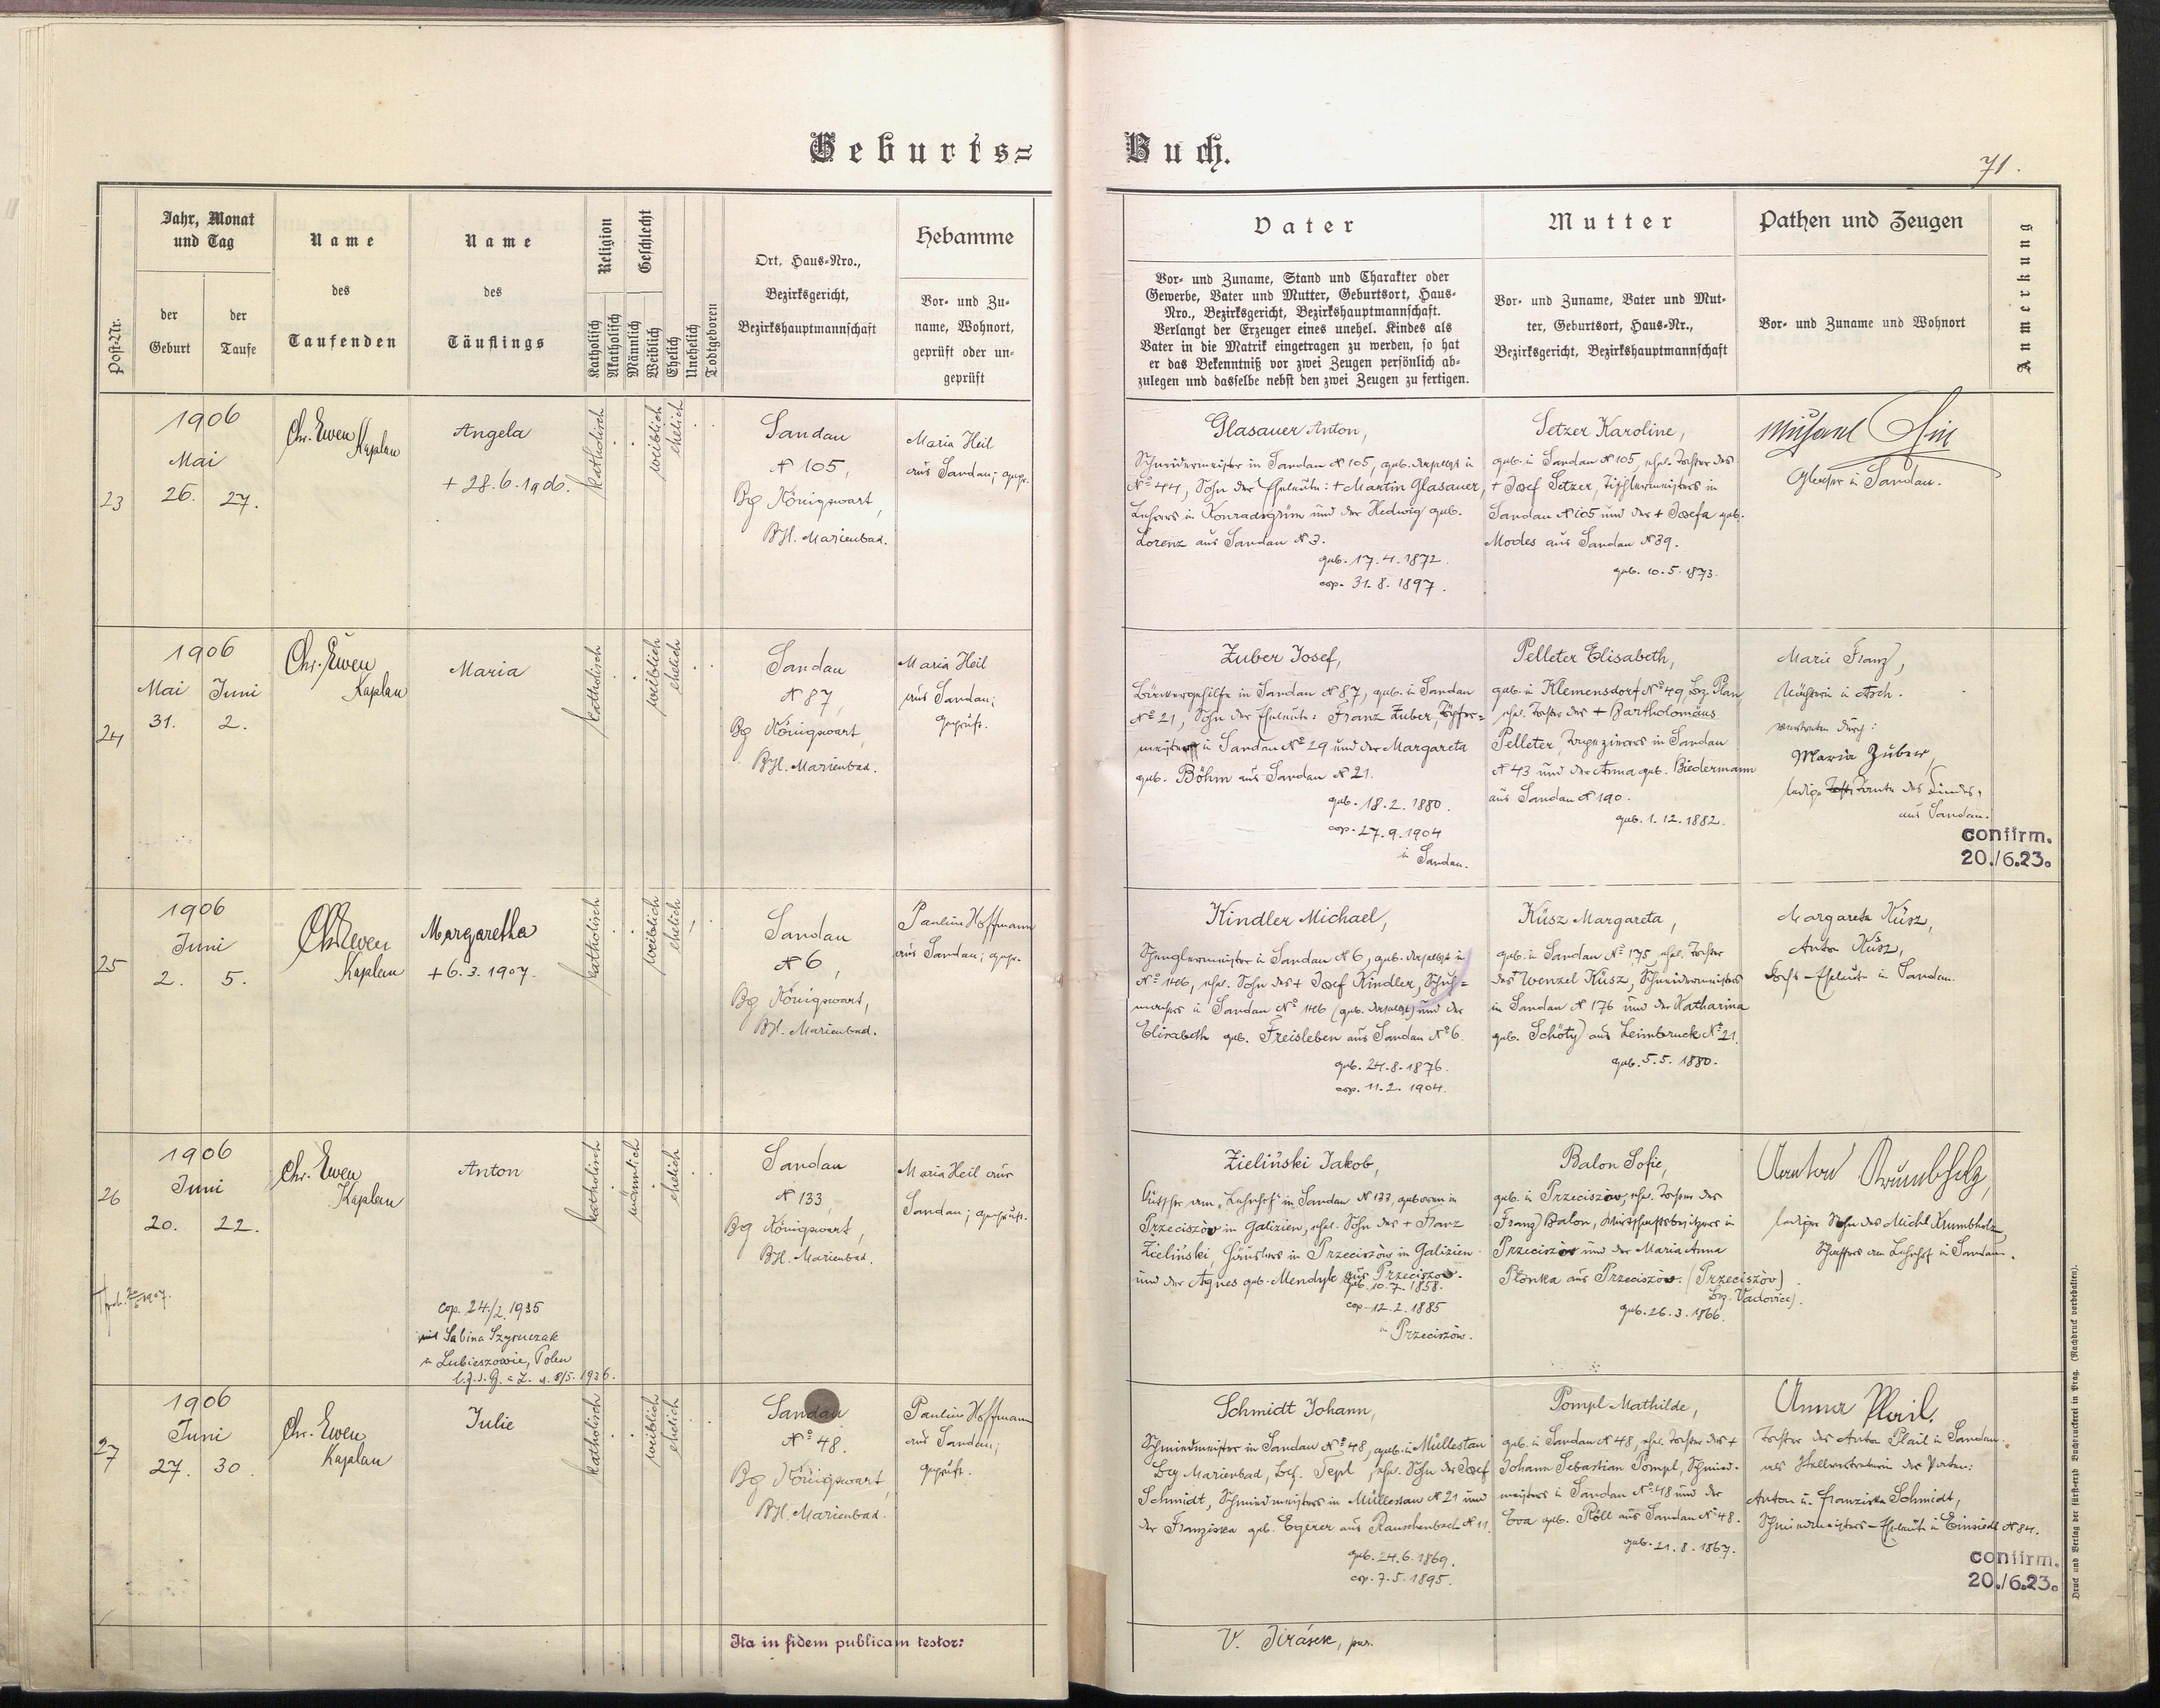 Geburts=
Buch.
71.
Post-Nr.
Jahr, Monat
und Tag
der
Geburt
der
Taufe
Name
des
Taufenden
Name
des
Täuflings
Religion
Katholisch
Akatholisch
Geschlecht
Männlich
Weiblich
Ehelich
Unehelich
Todtgeboren
Ort, Haus-Nro.,
Bezirksgericht,
Bezirkshauptmannschaft
Hebamme
Vor- und Zu-
name, Wohnort,
geprüft oder un-
geprüft
Vater
Vor- und Zuname, Stand und Charakter oder
Gewerbe, Vater und Mutter, Geburtsort, Haus-
Nro., Bezirksgericht, Bezirkshauptmannschaft.
Verlangt der Erzeuger eines unehel. Kindes als
Vater in die Matrik eingetragen zu werden, so hat
er das Bekenntniß vor zwei Zeugen persönlich ab-
zulegen und dasselbe nebst den zwei Zeugen zu fertigen.
Mutter
Vor- und Zuname, Vater und Mut-
ter, Geburtsort, Haus-Nr.,
Bezirksgericht, Bezirkshauptmannschaft
Pathen und Zeugen
Vor- und Zuname und Wohnort
Anmerkung
23
1906
Mai
26. 27.
Chr. Ewen
Kaplan
Angela
+ 28.6.1906.
katholisch
weiblich
ehelich
Sandau
N 105,
Bg Königswart,
BH. Marienbad.
Maria Heil
aus Sandau; gepr.
Glasauer Anton,
Schneidermeister in Sandau N 105, geb. daselbst in
No 44, Sohn der Eheleute: + Martin Glasauer,
Lehrers in Konradsgrün und der Hedwig geb.
Lorenz aus Sandau N 3.
geb. 17.4.1872.
cop. 31.8.1897.
Setzer Karoline,
geb. in Sandau N 105, ehel. Tochter des
+ Josef Setzer, Tischlermeisters in
Sandau N 105 und der + Josefa geb.
Modes aus Sandau N 39.
geb. 10.5.1873.
in Sandau.
24
1906
Mai Juni
31. 2.
Chr. Ewen
Kaplan
Maria
katholisch
weiblich
ehelich
Sandau
N 87,
Bg Königswart,
BH. Marienbad.
Maria Heil
aus Sandau;
geprüft.
Zuber Josef,
in Sandau N 87, geb. in Sandau
No 21, Sohn der Eheleute: Franz Zuber, Töpfer=
meisters in Sandau No 29 und der Margareta
geb. Böhm aus Sandau N 21.
geb. 18.2.1880.
cop. 27.9.1904
in Sandau.
Pelleter Elisabeth,
geb. in Klemensdorf No 49, Bez. Plan,
ehel. Tochter des + Bartholomäus
Pelleter, Tapezierers in Sandau
N 43 und der Anna geb. Biedermann
aus Sandau N 190.
geb. 1.12.1882.
Marie Franz,
in Asch.
vertreten durch:
Maria Zuber,
ledige Tante des Kindes,
aus Sandau.
confirm.
20./6.23.
25
1906
Juni
2. 5.
Chr. Ewen
Kaplan
Margaretha
+ 6.3.1907.
katholisch
weiblich
ehelich
Sandau
N 6,
Bg Königswart,
BH. Marienbad.
Pauline Hoffmann
aus Sandau; gepr.
Kindler Michael,
Spenglermeister in Sandau N 6, geb. daselbst in
No 146, ehel. Sohn des + Josef Kindler, Schuh=
machers in Sandau No 146 (geb. daselbst) und der
Elisabeth geb. Freisleben aus Sandau No 6.
geb. 24.8.1876.
cop. 11.2.1904.
Küsz Margareta,
geb. in Sandau No 175, ehel. Tochter
des Wenzel Küsz, Schneidermeisters
in Sandau N 176 und der Katharina
geb. Schöty aus Leimbruck No 21.
geb. 5.5.1880.
Margareta Küsz,
Anton Küsz,
Eheleute in Sandau.
26
1906
Juni
20. 22.
Chr. Ewen
Kaplan
Anton
cop. 24./2. 1935
mit Sabina Szymczak
in Lubieszowie, Polen
katholisch
männlich
ehelich
Sandau
N 133,
Bg Königswart,
BH. Marienbad.
Maria Heil aus
Sandau; geprüft.
Zieliński Jakob,
Kutscher am „Lehnhof" in Sandau N 133, geboren in
Przeciszów in Galizien, ehel. Sohn des + Franz
Zieliński, Häuslers in Przeciszów in Galizien
und der Agnes geb. Mendyk aus Przeciszow.
geb. 10.7.1858.
cop. 12.2.1885
in Przeciszów.
Balon Sofie,
geb. in Przeciszów, ehel. Tochter des
Franz Balon, Wirtschaftsbesitzers in
Przeciszów und der Maria Anna
Płonka aus Przeciszów. (Przeciszòv)
Bez. Vadovice).
geb. 26.3.1866.
Anton Krumbholz,
lediger Sohn des Michl Krumbholz,
Schaffers am Lehnhof in Sandau.
27
1906
Juni
27. 30.
Chr. Ewen
Kaplan
Julie
katholisch
weiblich
ehelich
Sandau
No 48.
Bg Königswart,
BH. Marienbad.
Pauline Hoffmann
aus Sandau;
geprüft.
Schmidt Johann,
Schmiedmeister in Sandau No 48, geb. in Müllestau
Bez Marienbad, Bez. Tepl, ehel. Sohn des Josef
Schmidt, Schmiedmeisters in Müllestau N 21 und
der Franziska geb. Egerer aus Rauschenbach N 11.
geb. 24.6.1869.
cop. 7.5.1895.
Pompl Mathilde,
geb. in Sandau N 48, ehel. Tochter des +
Johann Sebastian Pompl, Schmied-
meisters in Sandau No 48 und der
Eva geb. Plöll aus Sandau No 48.
geb. 21.8.1867.
Anna Plail.
Tochter des Anton Plail in Sandau.
als Stellvertreterin der Paten:
Anton u. Franziska Schmidt,
Schmiedmeisters-Eheleute in Einsiedl N 84.
confirm.
20./6.23.
Ita in fidem publicam testor:
V. Jirásek,
Druck und Verlag der fürsterzb. Buchdruckerei in Prag. (Nachdruck vorbehalten).